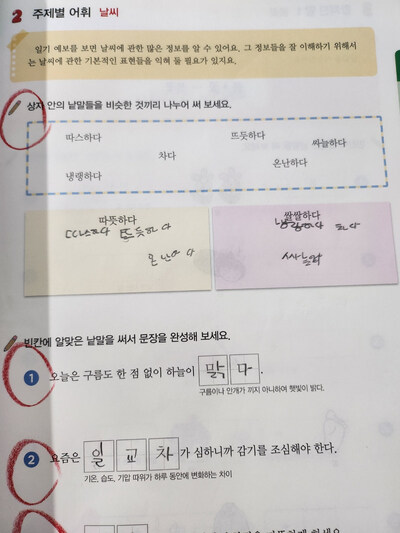 2 주제별 어휘 날씨
일기 예보를 보면 날씨에 관한 많은 정보를 알 수 있어요. 그 정보들을 잘 이해하기 위해서
는 날씨에 관한 기본적인 표현들을 익혀 둘 필요가 있지요.
상자 안의 낱말들을 비슷한 것끼리 나누어 써 보세요.
따스하다 뜨듯하다 싸늘하다
차다 온난하다
냉랭하다
따뜻하다 쌀쌀하다
뜨듯하다 차다
온난하다
빈칸에 알맞은 낱말을 써서 문장을 완성해 보세요.
1 오늘은 구름도 한 점 없이 하늘이 맑다.
구름이나 안개가 끼지 아니하여 햇빛이 밝다.
2 요즘은 일교차가 심하니까 감기를 조심해야 한다.
기온, 습도, 기압 따위가 하루 동안에 변화하는 차이